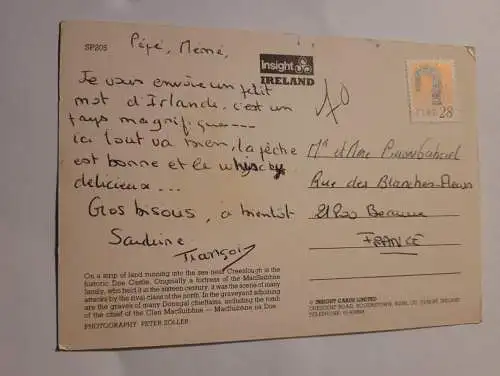 SP205
Pépé, Mémé,
Insight
IRELAND
Je vous envoie un petit
mot d'Irlande, c'est un
pays magnifique---
ici tout va bien, la pêche
est bonne et le whisky
délicieux...
Gros bisous, à bientôt
Sandrine
François
EIRE 28
Mr et Mme Gabriel
Rue des Blanches Fleurs
21200 Beaune
FRANCE
On a strip of land running into the sea near Creeslough is the
historic Doe Castle. Originally a fortress of the MacSuibhne
family, who held it in the sixteenth century, it was the scene of many
attacks by the rival clans of the north. In the graveyard adjoining
are the graves of many Donegal chieftains, including the tomb
of the chief of the Clan MacSuibhne — MacSuibhne na Doe.
PHOTOGRAPHY PETER ZOLLER
© INSIGHT CARDS LIMITED
TELEPHONE: